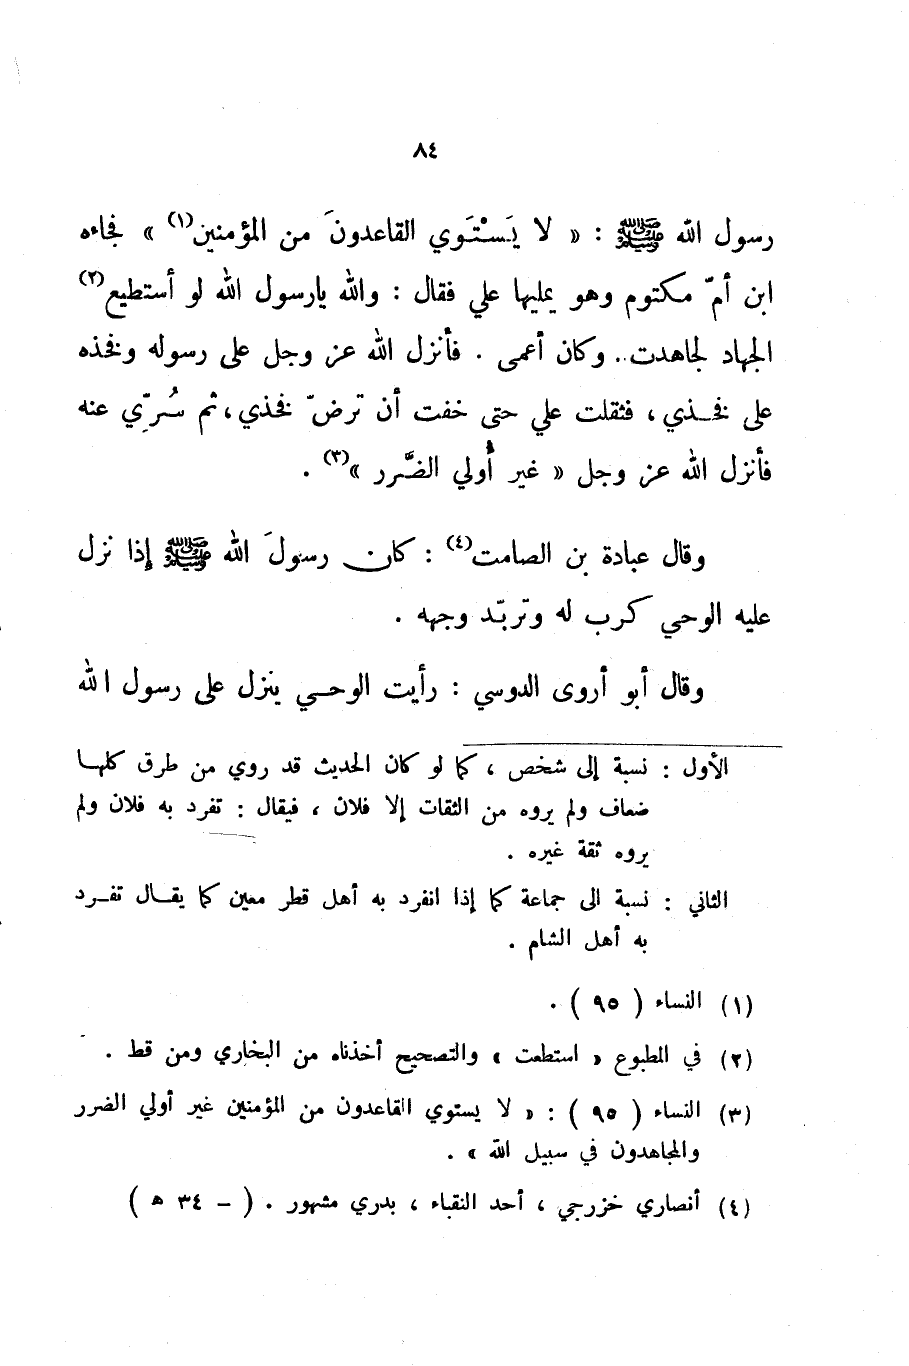 ٨٤
رسول الله ﷺ : « لا يَسْتَوي القاعدونَ من المؤمنين(١) » فجاءه
ابن أمّ مكتوم وهو يمليها علي فقال : والله يارسول الله لو أستطيع(٢)
الجهاد لجاهدت.. وكان أعمى . فأنزل الله عز وجل على رسوله وفخذه
على فخـذي ، فثقلت علي حتى خفت أن ترضّ فخذي، ثم سُرِّي عنه
فأنزل الله عز وجل « غير أُولي الضَّرر »(٣) .
وقال عبادة بن الصامت(٤) : كان رسولَ الله ﷺ إذا نزل
عليه الوحي كرب له وتربّد وجهه .
وقال أبو أروى الدوسي : رأيت الوحـي ينزل على رسول الله
الأول : نسبة إلى شخص ، كما لو كان الحديث قد روي من طرق كلهـا
ضعاف ولم يروه من الثقات إلا فلان ، فيقال : تفرد به فلان ولم
يروه ثقة غيره .
الثاني : نسبة الى جماعة كما إذا انفرد به أهل قطر معين كما يقـال تفـرد
به أهل الشام .
(١) النساء ( ٩٥ ) .
(٢) في المطبوع « استطعت » والتصحيح أخذناه من البخاري ومن قط .
(٣) النساء ( ٩٥ ) : « لا يستوي القاعدون من المؤمنين غير أولي الضرر
والمجاهدون في سبيل الله » .
(٤) أنصاري خزرجي ، أحد النقباء ، بدري مشهور . ( - ٣٤ ه )